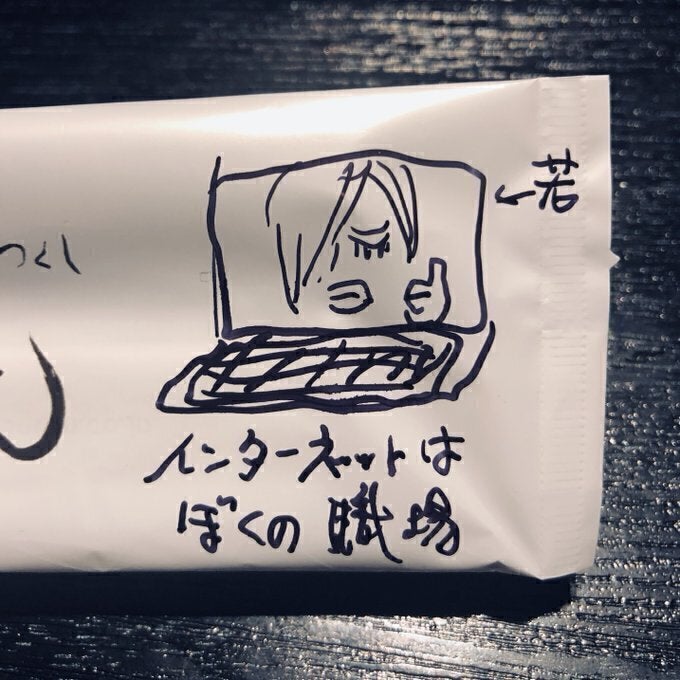 ←若
つくし
インターネットは
ぼくの職場